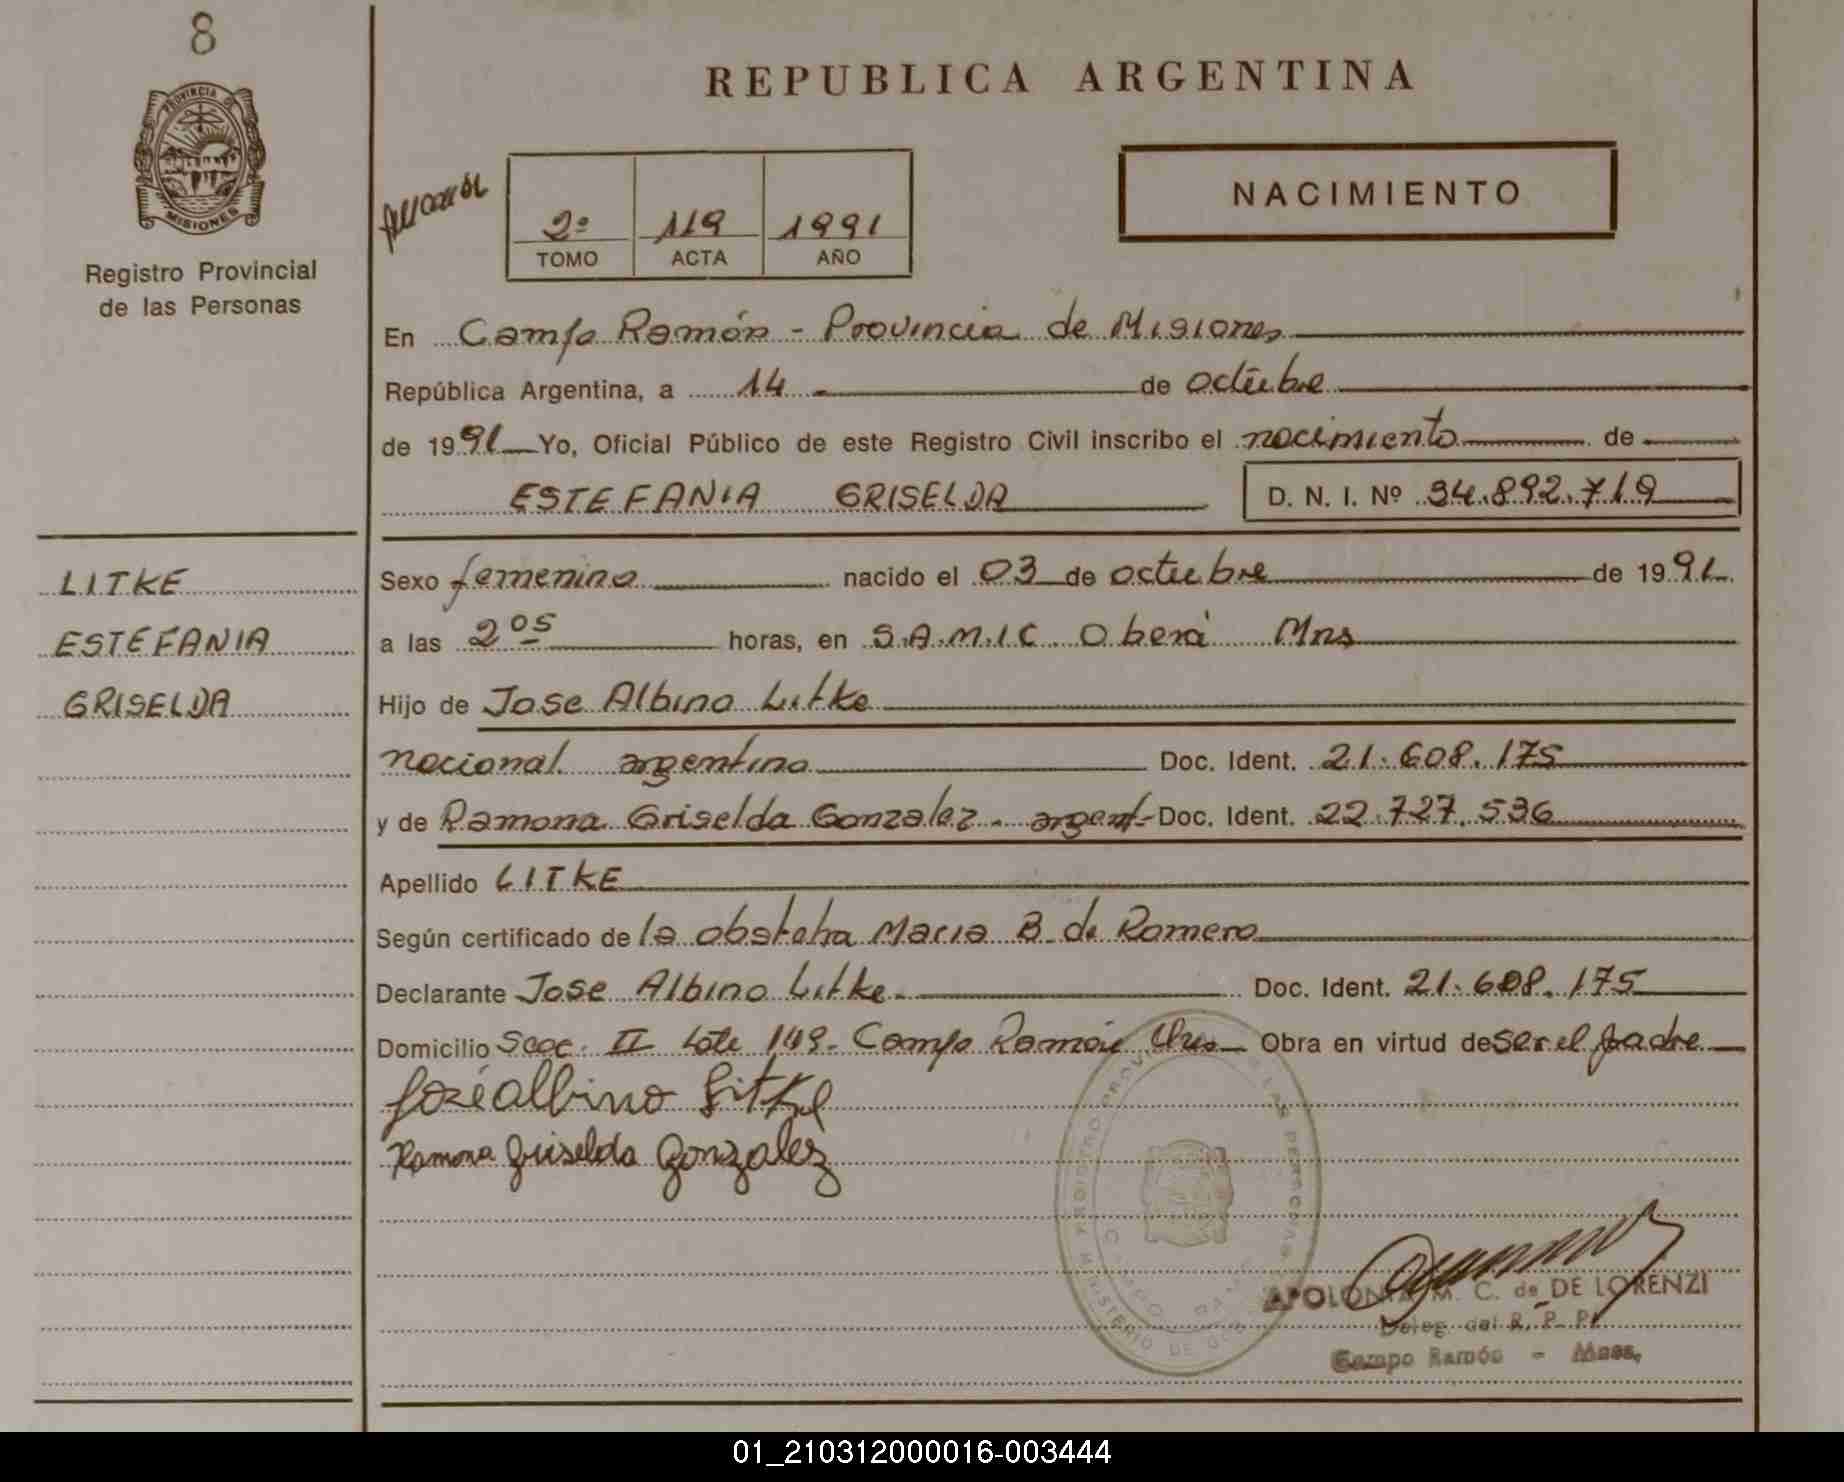 8
PROVINCIA DE
MISIONES
Registro Provincial
de las Personas
REPUBLICA ARGENTINA
2º 119 1991
TOMO ACTA AÑO
NACIMIENTO
En Campo Ramón - Provincia de Misiones
República Argentina, a 14 de octubre
de 1991 Yo, Oficial Público de este Registro Civil inscribo el nacimiento de
ESTEFANIA GRISELDA D. N. I. Nº 34.892.719
LITKE
ESTEFANIA
GRISELDA
Sexo femenino nacido el 03 de octubre de 1991
a las 2 05 horas, en S.A.M.I.C. Oberá Mns
Hijo de Jose Albino Litke
nacional argentina Doc. Ident. 21.608.175
y de Ramona Griselda Gonzalez - argent- Doc. Ident. 22.727.536
Apellido LITKE
Según certificado de la obstetra Maria B. de Romero
Declarante Jose Albino Litke Doc. Ident. 21.608.175
Domicilio Secc. II Lote 149 - Campo Ramón Obra en virtud de ser el padre
José Albino Litke
Ramona Griselda Gonzalez
APOLONIA M. C. de DE LORENZI
Deleg. del R. P. P.
Campo Ramón - Mnes.
01_210312000016-003444